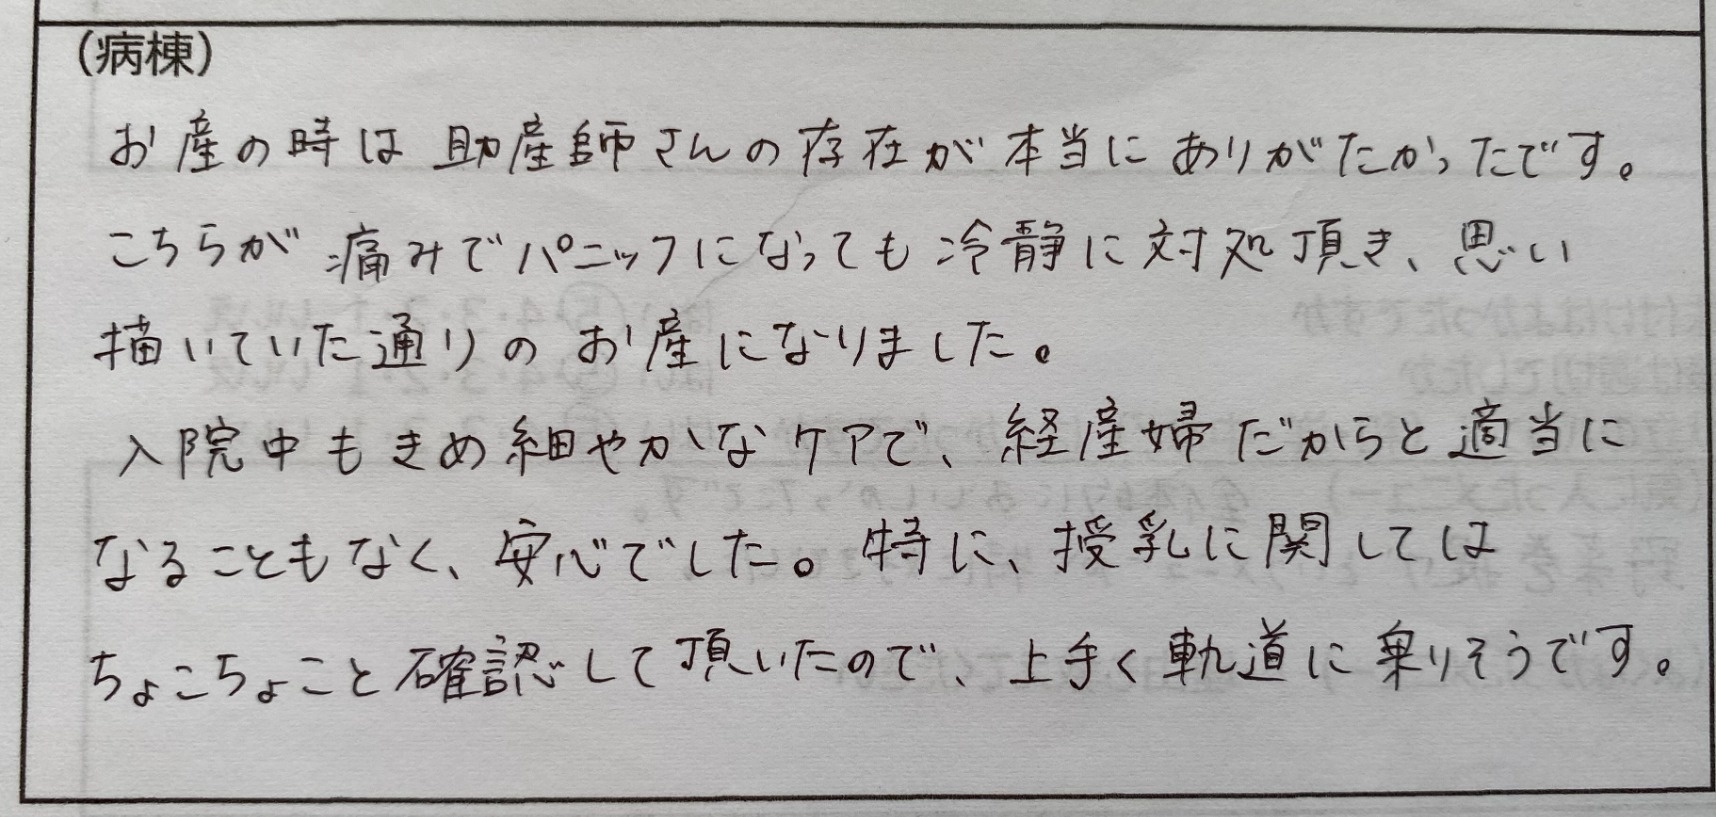 (病棟)
お産の時は助産師さんの存在が本当にありがたかったです。
こちらが痛みでパニックになっても冷静に対処頂き、思い
描いていた通りのお産になりました。
入院中もきめ細やかなケアで、経産婦だからと適当に
なることもなく、安心でした。特に、授乳に関しては
ちょこちょこと確認して頂いたので、上手く軌道に乗りそうです。